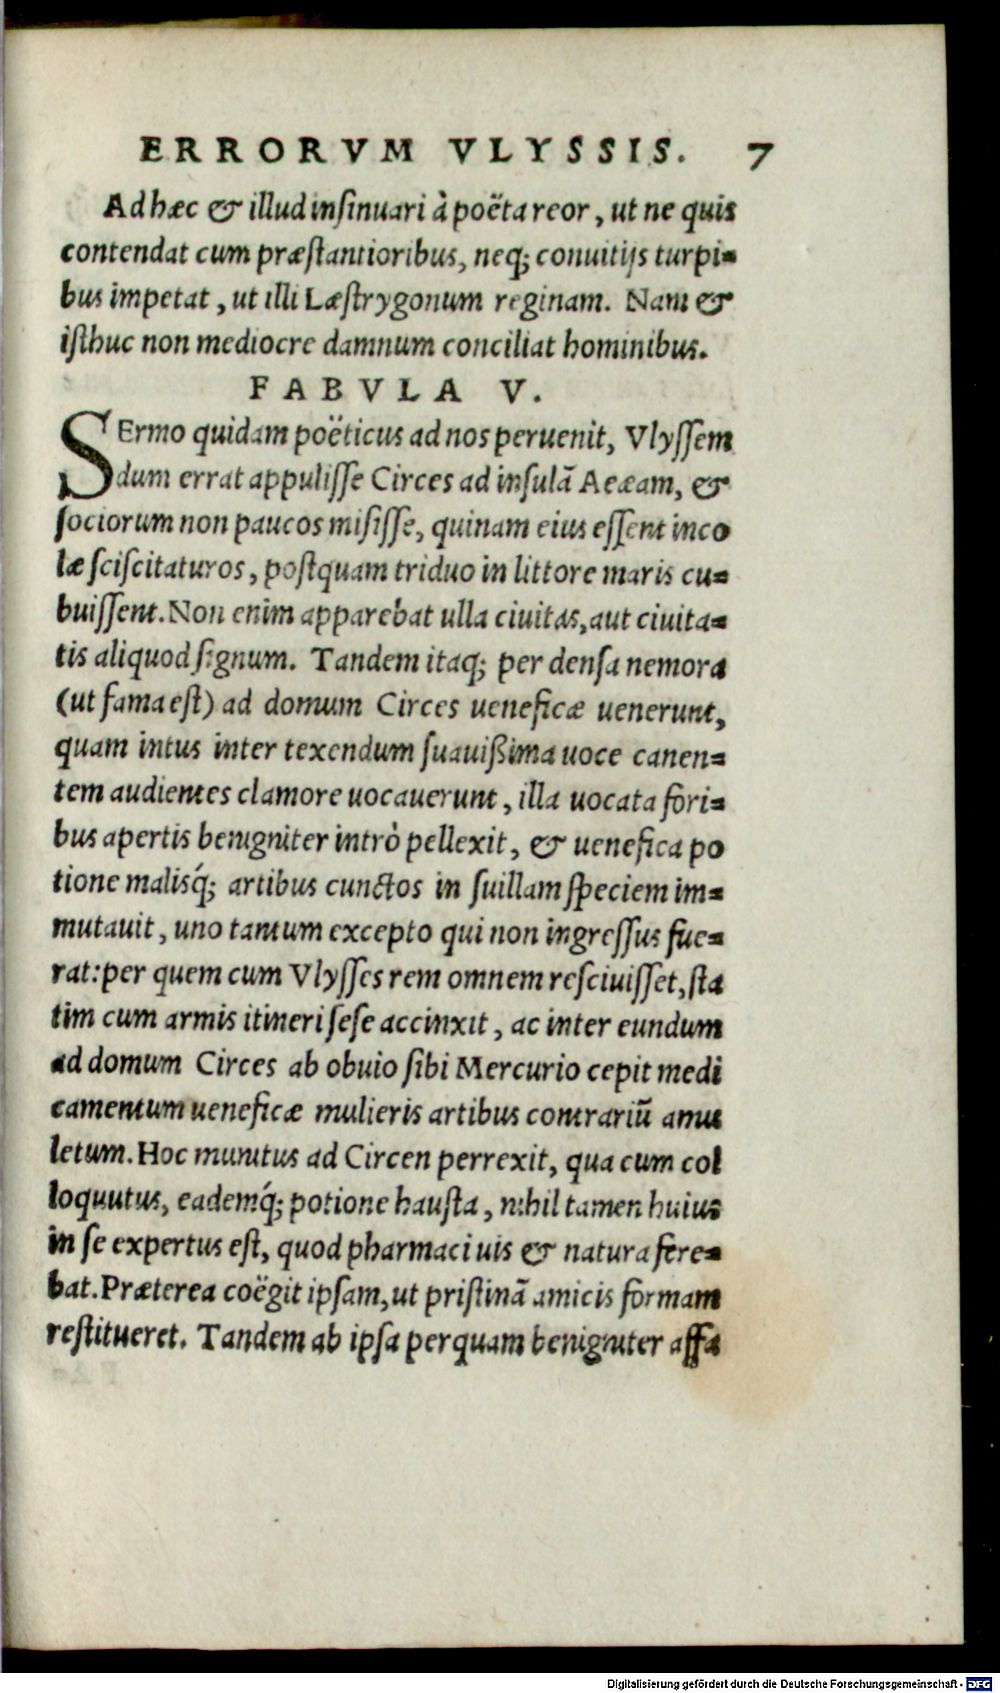 ERRORVM VLYSSIS. 7
Ad hæc & illud insinuari à poëta reor, ut ne quis
contendat cum præstantioribus, neq; conuitijs turpi-
bus impetat, ut illi Læstrygonum reginam. Nam &
isthuc non mediocre damnum conciliat hominibus.
FABVLA V.
SErmo quidam poëticus ad nos peruenit, Vlyssem
dum errat appulisse Circes ad insulã Aeæam, &
sociorum non paucos misisse, quinam eius essent inco
læ sciscitaturos, postquam triduo in littore maris cu-
buissent. Non enim apparebat ulla ciuitas, aut ciuita-
tis aliquod signum. Tandem itaq; per densa nemora
(ut fama est) ad domum Circes ueneficæ uenerunt,
quam intus inter texendum suauißima uoce canen-
tem audientes clamore uocauerunt, illa uocata fori-
bus apertis benigniter intrò pellexit, & uenefica po
tione malisq́; artibus cunctos in suillam speciem im-
mutauit, uno tantum excepto qui non ingressus fue-
rat: per quem cum Vlysses rem omnem resciuisset, sta
tim cum armis itineri sese accinxit, ac inter eundum
ad domum Circes ab obuio sibi Mercurio cepit medi
camentum ueneficæ mulieris artibus contrariũ amu
letum. Hoc munitus ad Circen perrexit, qua cum col
loquutus, eademq́; potione hausta, nihil tamen huius
in se expertus est, quod pharmaci uis & natura fere-
bat. Præterea coëgit ipsam, ut pristinã amicis formam
restitueret. Tandem ab ipsa perquam benigniter affa
Digitalisierung gefördert durch die Deutsche Forschungsgemeinschaft - DFG